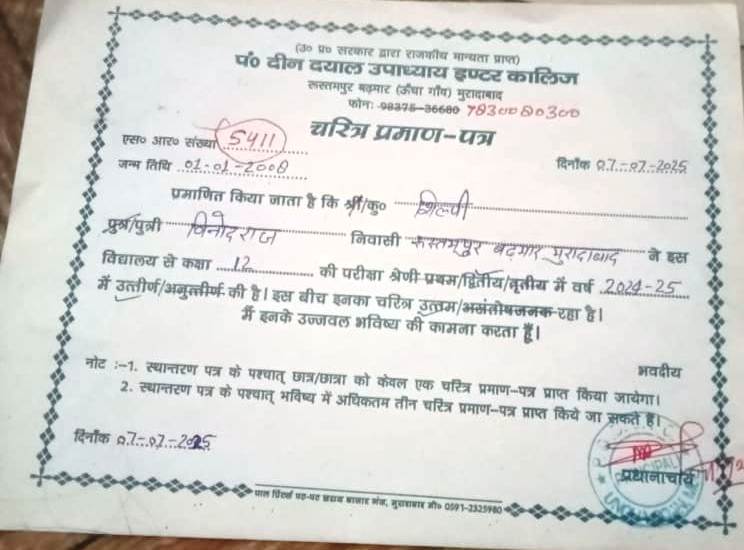 (उ० प्र० सरकार द्वारा राजकीय मान्यता प्राप्त)
पं० दीन दयाल उपाध्याय इण्टर कालिज
रूस्तमपुर बढ़मार (ऊँचा गाँव) मुरादाबाद
फोन: 98375-36680 7830080300
चरित्र प्रमाण-पत्र
एस० आर० संख्या 5411
दिनाँक 07-07-2025
जन्म तिथि 01-01-2008
प्रमाणित किया जाता है कि श्री/कु० शिल्पी
पुत्र/पुत्री विनोद राज निवासी रूस्तमपुर बढ़मार मुरादाबाद ने इस
विद्यालय से कक्षा 12 की परीक्षा श्रेणी प्रथम/द्वितीय/तृतीय में वर्ष 2024-25
में उत्तीर्ण/अनुत्तीर्ण की है। इस बीच इनका चरित्र उत्तम/असंतोषजनक रहा है।
मैं इनके उज्जवल भविष्य की कामना करता हूँ।
भवदीय
नोट :-1. स्थान्तरण पत्र के पश्चात् छात्र/छात्रा को केवल एक चरित्र प्रमाण-पत्र प्राप्त किया जायेगा।
2. स्थान्तरण पत्र के पश्चात् भविष्य में अधिकतम तीन चरित्र प्रमाण-पत्र प्राप्त किये जा सकते हैं।
दिनाँक 07-07-2025
प्रधानाचार्य
पाल प्रिंटर्स बाजार गंज, मुरादाबाद मो० 0591-2325980